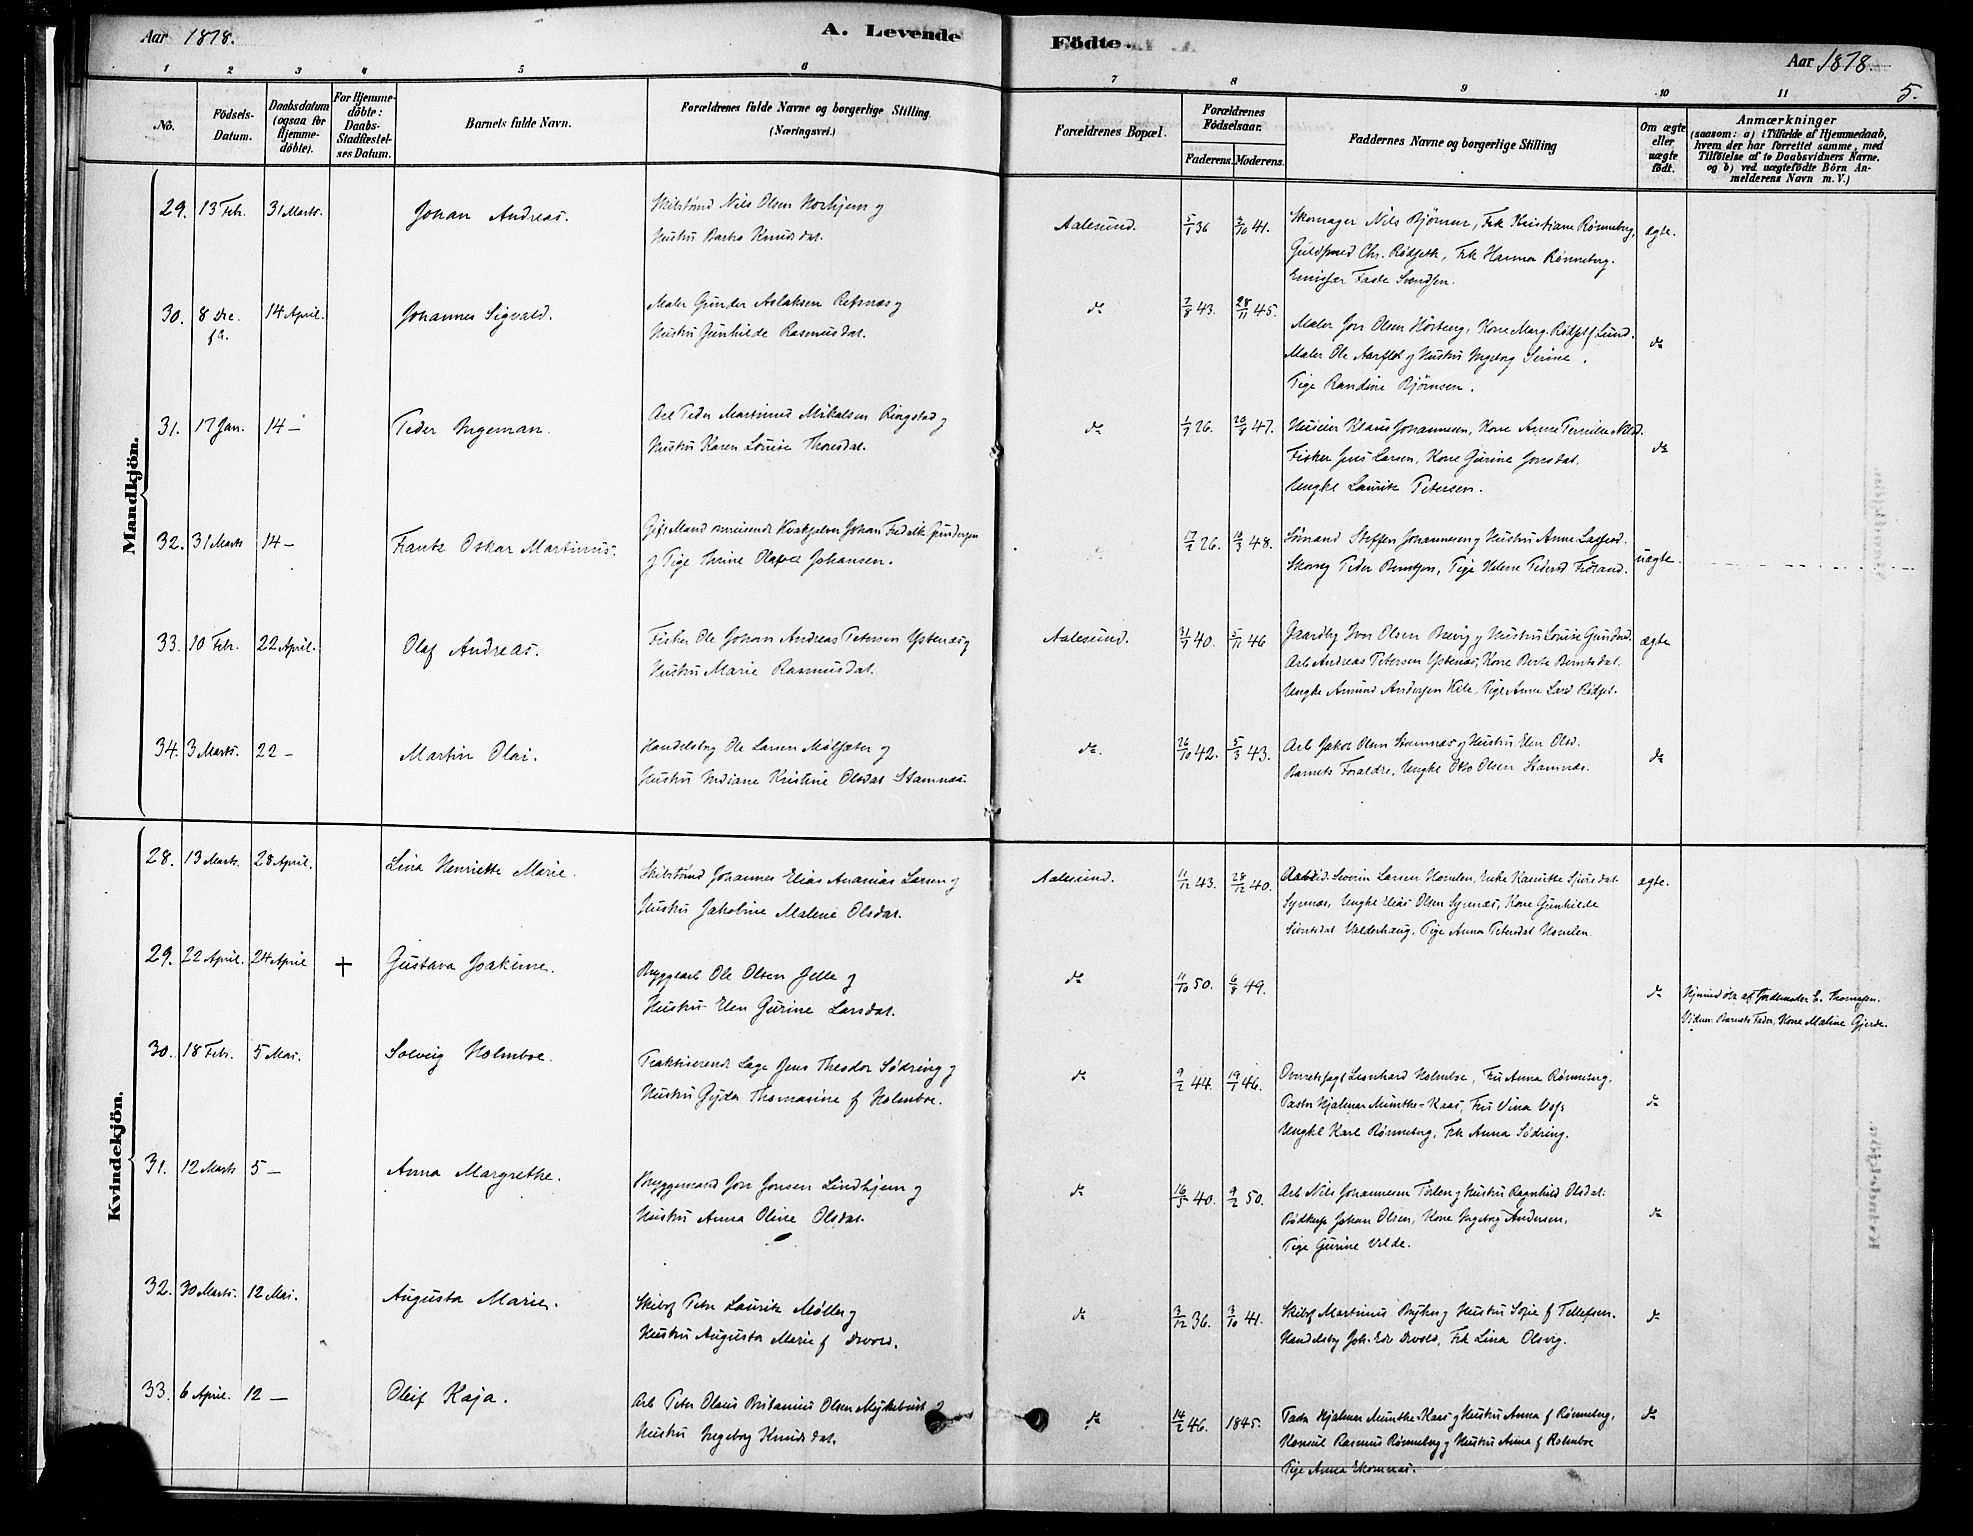 Aar 1878.
A. Levende Födte.
Aar 1878.
5.
1 2 3 4 5 6 7 8 9 10 11
No.
Födsels-Datum.
Daabsdatum (ogsaa for Hjemme-döbte).
For Hjemme-döbte: Daabs-Stadfæstel-ses Datum.
Barnets fulde Navn.
Forældrenes fulde Navne og borgerlige Stilling
(Næringsvei.)
Forældrenes Bopæl.
Forældrenes Födselsaar.
Faderens. Moderens.
Faddernes Navne og borgerlige Stilling
Om ægte eller uægte födt.
Anmærkninger
(saasom: a) i Tilfælde af Hjemmedaab,
hvem der har forrettet samme, med
Tilföielse af to Daabsvidners Navne.
og b) ved uægtefödte Börn An-
melderens Navn m. V.)
Mandkjön.
29. 13 Feb. 31 Marts. Johan Andreas.
Nils Olsen Norhjem og
Hustru Knudsdat.
Aalesund. 5/1 36 3/10 41.
Skomager Nils Bjørnsen, Frk Kristiane Rønneberg,
Guldsmed Chr. Rødseth, Frk Hanna Rønneberg.
ægte.
30. 8 Dec. f.A. 14 April. Johannes Sigvald.
Maler Gunder Aslaksen Refsnæs og
Hustru Gunhilde Rasmusdat.
do 7/8 43. 28/11 45.
Maler Jon Olsen Kone Marg. Lund.
Maler Ole Aarflot og Hustru Ingeborg Serine.
Pige Randine Bjørnsen.
do
31. 17 Jan. 14 - Peder Ingeman.
Arb Peder Martinus Mikalsen Ringstad og
Hustru Karen Louise Thoresdat.
do 1/7 26. 20/8 47.
Klaus Johannesen, Kone Anne Pernille
Fisker Jens Larsen, Kone Gurine Jonsdat.
Ungkl Lauritz Petersen.
do
32. 31 Marts 14 - Frantz Oskar Martinus.
Gift Mand omreisende Johan Fredrik Gundersen
og Pige Olava Johansen.
17/2 26. 10/3 48.
Sömand Steffen Johannesen og Hustru Anne
Peder Berntsen, Pige Helene
uægte.
33. 10 Feb. 22 April. Olaf Andreas.
Fisker Ole Johan Andreas Petersen Ystenæs og
Hustru Marie Rasmusdat.
Aalesund. 31/7 40. 5/11 46
Gaardbr Iver Olsen Brevig og Hustru Louise
Arb Andreas Petersen Ystenæs, Kone Berte Berntsdat.
Ungkl Amund Andersen Pige Anne
ægte
34. 3 Marts. 22 - Martin Olai.
Handelsbog Ole Larsen Mølsæter og
Hustru Indiane Kristine Olsdat Stamnæs.
do. 26/10 42. 5/3 43.
Arb Jakob Olsen Stamnæs og Hustru Elen Olsd.
Barnets Forældre, Ungkl Otto Olsen Stamnæs.
do
Kvindekjön.
28. 13 Marts. 28 April. Lina Henriette Marie.
Johannes Elias Ananias Larsen og
Hustru Jakobine Malene Olsdat.
Aalesund. 11/12 43. 28/12 40.
Severin Larsen Enke Sjursdat
Ungkl Elias Olsen Kone Gunhilde
Sivertsdat Valderhaug, Pige Anna Petersdat
ægte.
29. 22 April. 24 April † Gustava Joakime.
Bryggearb Ole Olsen Jelle og
Hustru Elen Gurine Larsdat.
do 11/10 50. 6/8 49.
do
Hjemmdöbt af Jordemoder E. Thomasen.
Vidner. Barnets Fader, Kone Maline Gjerde.
30. 18 Feb. 5 Mai. Solveig Holmboe.
Praktiserende Læge Jens Theodor Södring og
Hustru Gyda Thomasine f Holmboe.
do 9/2 44. 19/1 46.
Leonhard Holmboe, Fru Anna Rønneberg,
Pastor Hjalmar Munthe-Kaas, Fru Vina Voss
Ungkl Karl Rønneberg, Frk Anna Södring.
do
31. 12 Marts 5 - Anna Margrethe.
Bryggemand Jon Jonsen Lindhjem og
Hustru Anna Oline Olsdat.
do 16/5 40. 9/2 50.
Arb Nils Johannesen og Hustru Ragnhild Olsdat.
Johan Olsen, Kone Ingeborg Andersen,
Pige Gurine Velde.
do
32. 30 Marts. 12 Mai. Augusta Marie.
Skibsf Peter Lauritz Møller og
Hustru Augusta Marie f Devold.
do 3/12 36. 3/10 41.
Skibsf Martinus og Hustru Sofie f Tellefsen.
Handelsbog Joh. Edv Devold, Frk Lina Olsvig.
do
33. 6 April. 12 - Oleif Kaja.
Arb Peter Olaus Britanius Olsen Myklebust og
Hustru Ingeborg Knudsdat.
do 14/2 46. 1845.
Hjalmar Munthe-Kaas og Hustru Anna f Rønneberg,
Konsul Rasmus Rønneberg og Hustru Anna f Holmboe
Pige Anna
do